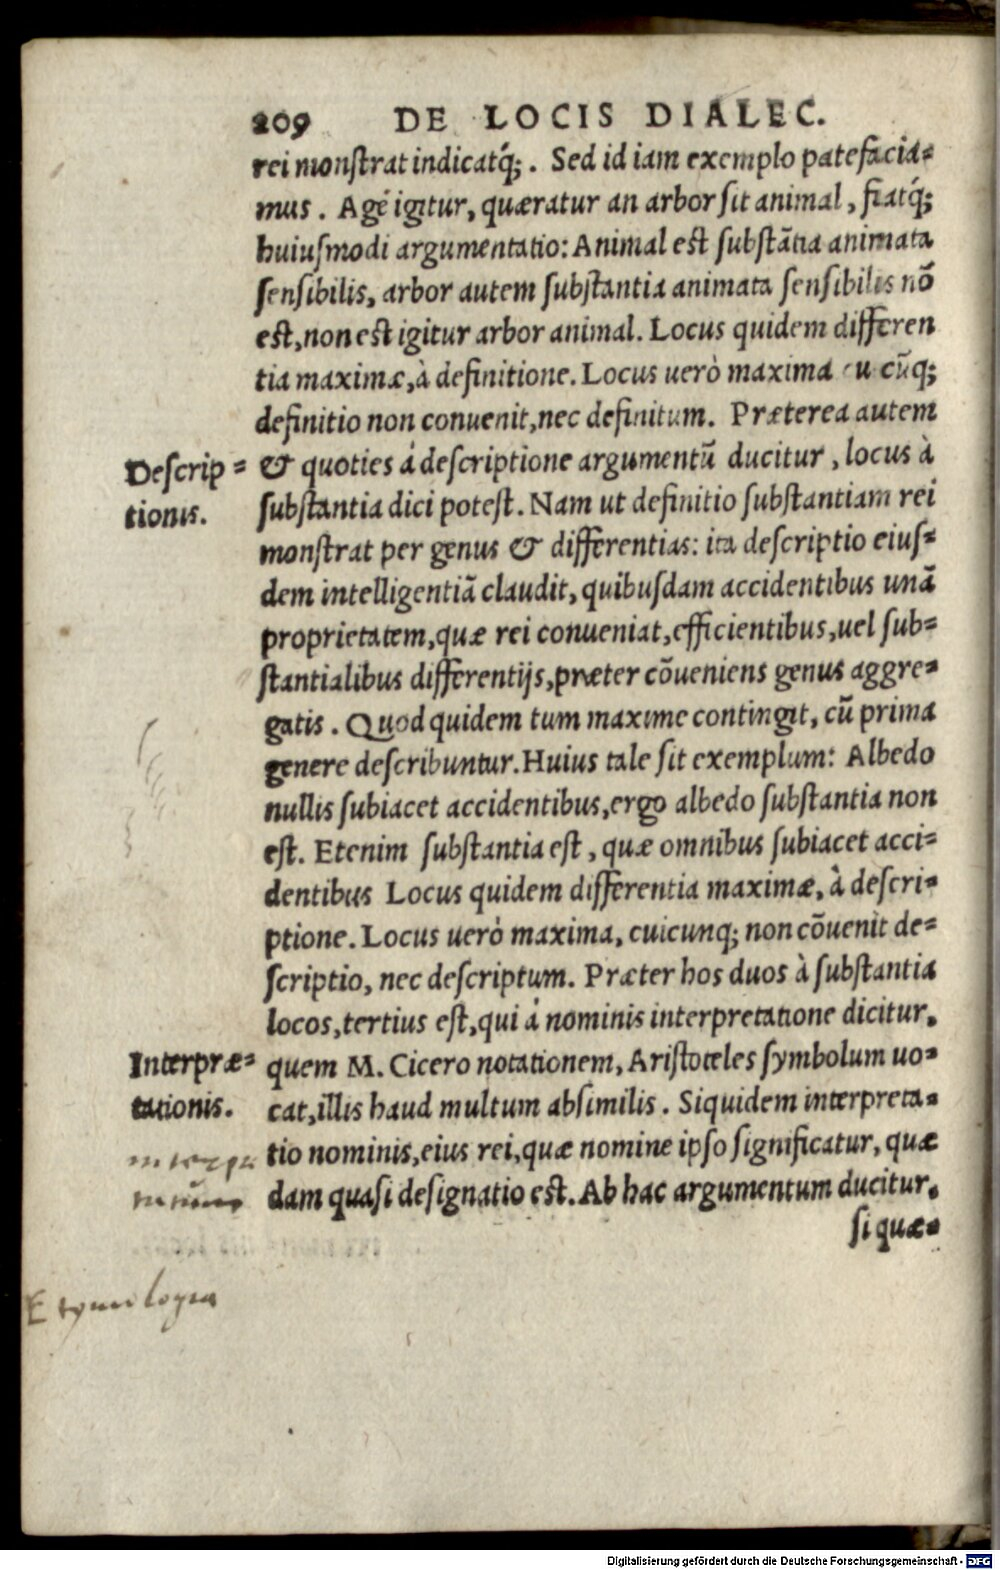 209 DE LOCIS DIALEC.
rei monſtrat indicatq́;. Sed id iam exemplo patefacia=
mus. Age igitur, quæratur an arbor ſit animal, fiatq́;
huiuſmodi argumentatio: Animal eſt ſubſtātia animata
ſenſibilis, arbor autem ſubſtantia animata ſenſibilis nō
eſt, non eſt igitur arbor animal. Locus quidem differen
tia maximæ, à definitione. Locus uerò maxima cūq;
definitio non conuenit, nec definitum. Præterea autem
Deſcrip=
tionis.
& quoties á deſcriptione argumentū ducitur, locus à
ſubſtantia dici poteſt. Nam ut definitio ſubſtantiam rei
monſtrat per genus & differentias: ita deſcriptio eiuſ=
dem intelligentiā claudit, quibuſdam accidentibus unā
proprietatem, quæ rei conueniat, efficientibus, uel ſub=
ſtantialibus differentijs, præter cōueniens genus aggre=
gatis. Quod quidem tum maxime contingit, cū prima
genere deſcribuntur. Huius tale ſit exemplum: Albedo
nullis ſubiacet accidentibus, ergo albedo ſubſtantia non
eſt. Etenim ſubſtantia eſt, quæ omnibus ſubiacet acci=
dentibus Locus quidem differentia maximæ, à deſcri=
ptione. Locus uerò maxima, cuicunq; non cōuenit de=
ſcriptio, nec deſcriptum. Præter hos duos à ſubſtantia
locos, tertius eſt, qui á nominis interpretatione dicitur.
Interpræ=
tationis.
quem M. Cicero notationem, Ariſtoteles ſymbolum uo=
cat, illis haud multum abſimilis. Siquidem interpreta=
tio nominis, eius rei, quæ nomine ipſo ſignificatur, quæ
dam quaſi deſignatio eſt. Ab hac argumentum ducitur.
ſi quæ=
Etymologia